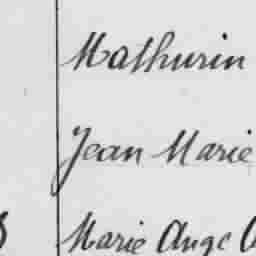 Mathurin
Jean Marie
Marie Ange